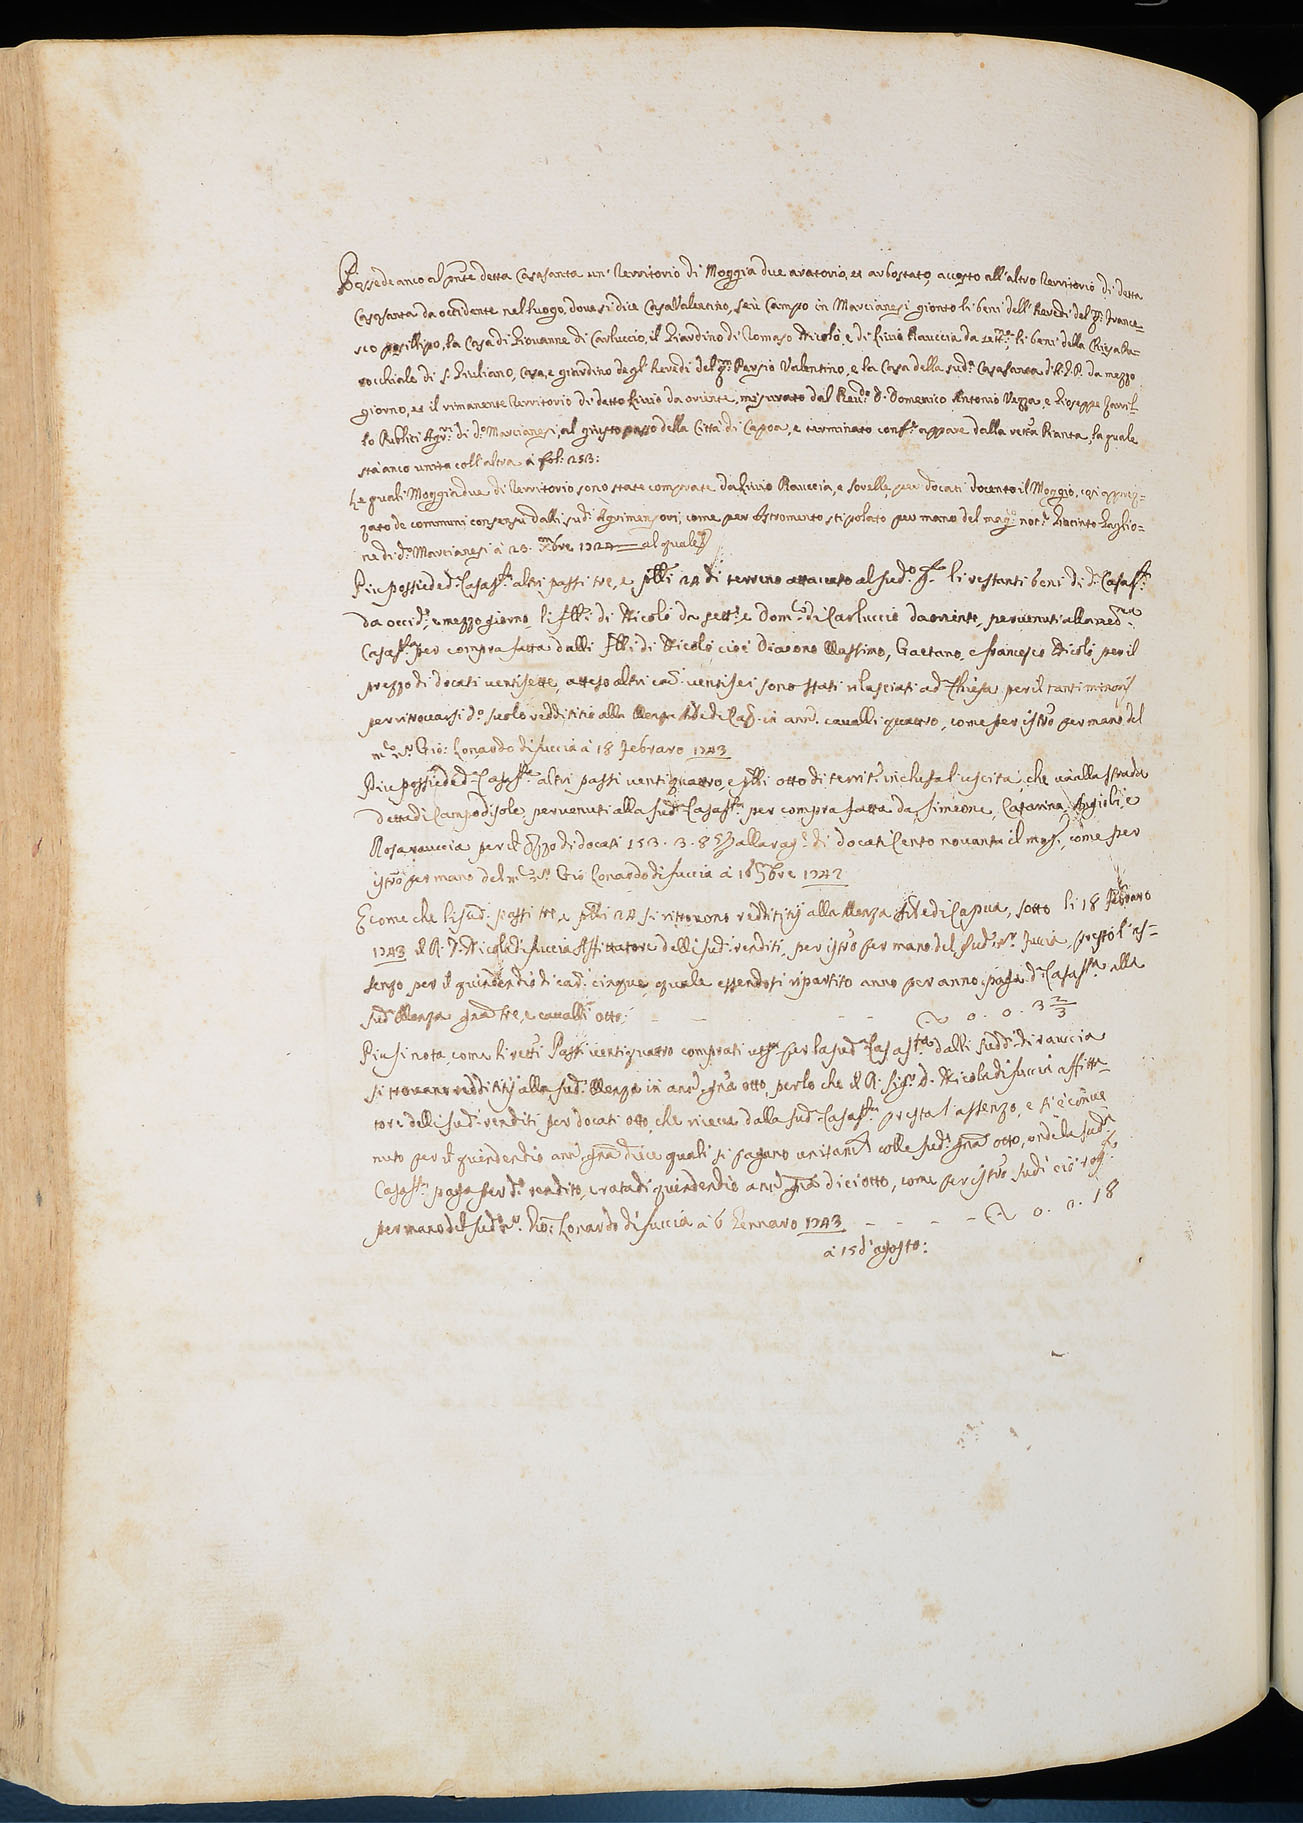 Possede anco al pñte detta Casasanta un' Territorio di Moggia due aratorio, et arbostato, accosto all'altro Territorio di detta
Casasanta da occidente nel luogo, dove si dice CasaValentino, seù Campo in Marcianesi gionto li beni dell'Heredi del qm. France=
sco posillipo, la Casa di Giovanne di Carluccio, il Giardino di Tomaso Nicolò, e di Livio Rauccia da sett.ne, li beni della Chiesa Pa=
rocchiale di S. Giuliano, Casa, e giardino degl'Heredi del qm. Persio Valentino, e la Casa della sud.a Casasanta d'A.G.P. da mezzo
giorno, et il rimanente Territorio di detto Livio da oriente, misurato dal Reu.do D. Domenico Antonio Vezza, e Gioseppe
lo Publici Agr.ri di d.o Marcianesi, al giusto passo della Città di Capoa, e terminato conf.e appare dalla retr.a Pianta, la quale
stà anco unita coll'altra à fol: 253:
Le quali Moggia due di Territorio sono state comprate da Livio Rauccia, e sorelle, per docati docento il Moggio, così apprez=
zato de communi consensu dalli sud.i Agrimensori, come per Istromento stipolato per mano del mag.co not.r Giacinto Zaglio=
ne di d.o Marcianesi à 23. 1724 al quale
Piu possiede d.a Casas.ta altri passi tre, e p̃lli 24 di terreno attaccato al sud.o li restanti beni di d.a Casas.ta
da occid.e e mezzo giorno, li f̃lli di Nicolò da sett.e e Dom.co di Carluccio da oriente, pervenuti alla med.ma
Casas.ta per compra fatta dalli f̃lli di Nicolò cioè Diacono Massimo, Gaetano, e francesco Nicolò per il
prezzo di docati ventisette, atteso altri ca.ni ventisei sono stati rilasciati ad Chiesa per il tanti minoris
per ritrovarsi d.o suolo reddititio alla Menza di Cap.a in ann.i cavalli quattro, come per istr.o per mano del
m.co n.r Gio: Lonardo di fuccia à 18 febraro 1743
Piu possiede d.a Casas.ta altri passi venti quattro, e p̃lli otto di territ.o inclusa l'uscita, che và alla strada
detta di Campo di sole, pervenuti alla sud.a Casas.ta per compra fatta da Simeone, Catarina, Angioli, e
Rosa rauccia per il p̃zzo di docati 153.3.8 alla rag.e di docati Cento novanta il mog.o, come per
istr.o per mano del m.co n.r Gio Lonardo di fuccia à 16 Xbre 1742
E come che li sud.i passi tre, e p̃lli 24 si ritrovono redditizij alla Menza di Capua, sotto li 18 febraro
1743 il R. D. Nicola di fuccia Affittatore delli sud.i renditi, per istr.o per mano del sud.o n.r fuccia, prestò l'as=
senzo per il quindendio di car.i cinque, quale essendosi ripartito anno per anno, paga d.a Casas.ta alla
sud.a Menza gña tre, e cavalli otto: – – – 0. 0. 3 2/3
Piu si nota, come li retr.i Passi venti quattro comprati ut s.a per la sud.a Casas.ta dalli sudd.i di rauccia
si trovano reddititij alla sud.a Menza in ann.i gña otto, per lo che il R. Sig.r D. Nicola di fuccia affitta=
tore delli sud.i renditi per docati otto, che riceve dalla sud.a Casas.ta presta l'assenzo, e si è conve
nuto per il quindendio ann.i gña diece quali si pagano unitam.te colle sud.e gña otto, onde la sud.a
Casas.ta paga per d.o rendito, e rata di quindendio ann.i gña dieciotto, come per istr.o sudi ciò rog.to
per mano del sud.o n.r Gio: Lonardo di fuccia à 6 Gennaro 1743 – – – – 0. 0. 18
à 15 d'agosto: